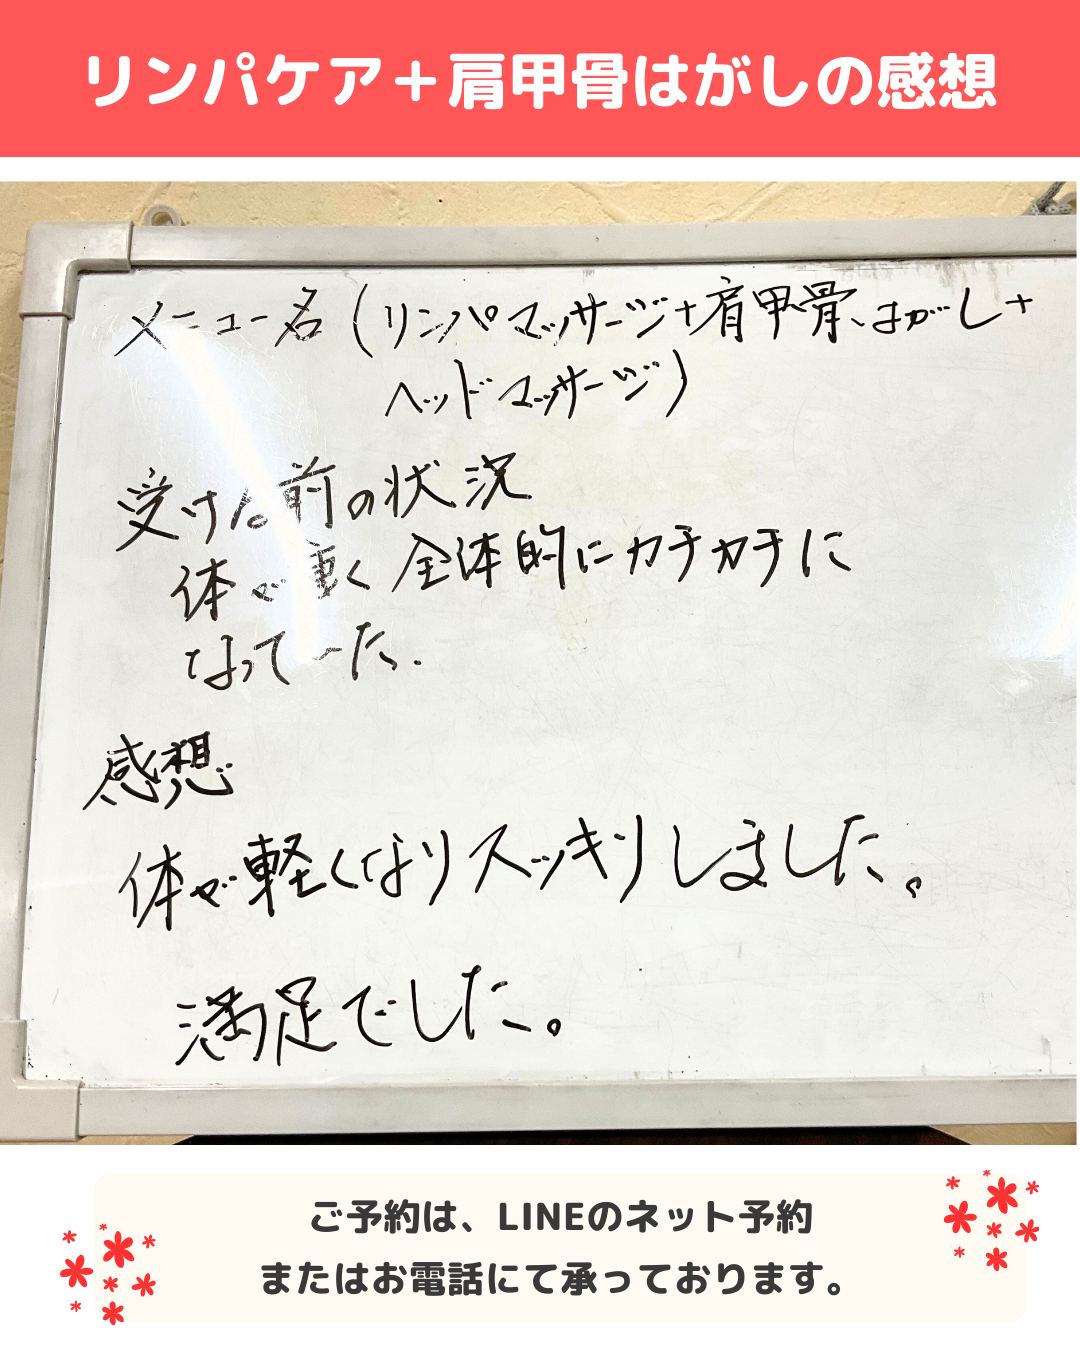 リンパケア＋肩甲骨はがしの感想
メニュー名(リンパマッサージ+肩甲骨はがし+
ヘッドマッサージ)
受ける前の状況
体が重く全体的にカチカチに
なってた.
感想
体が軽くなりスッキリしました。
満足でした。
ご予約は、LINEのネット予約
またはお電話にて承っております。